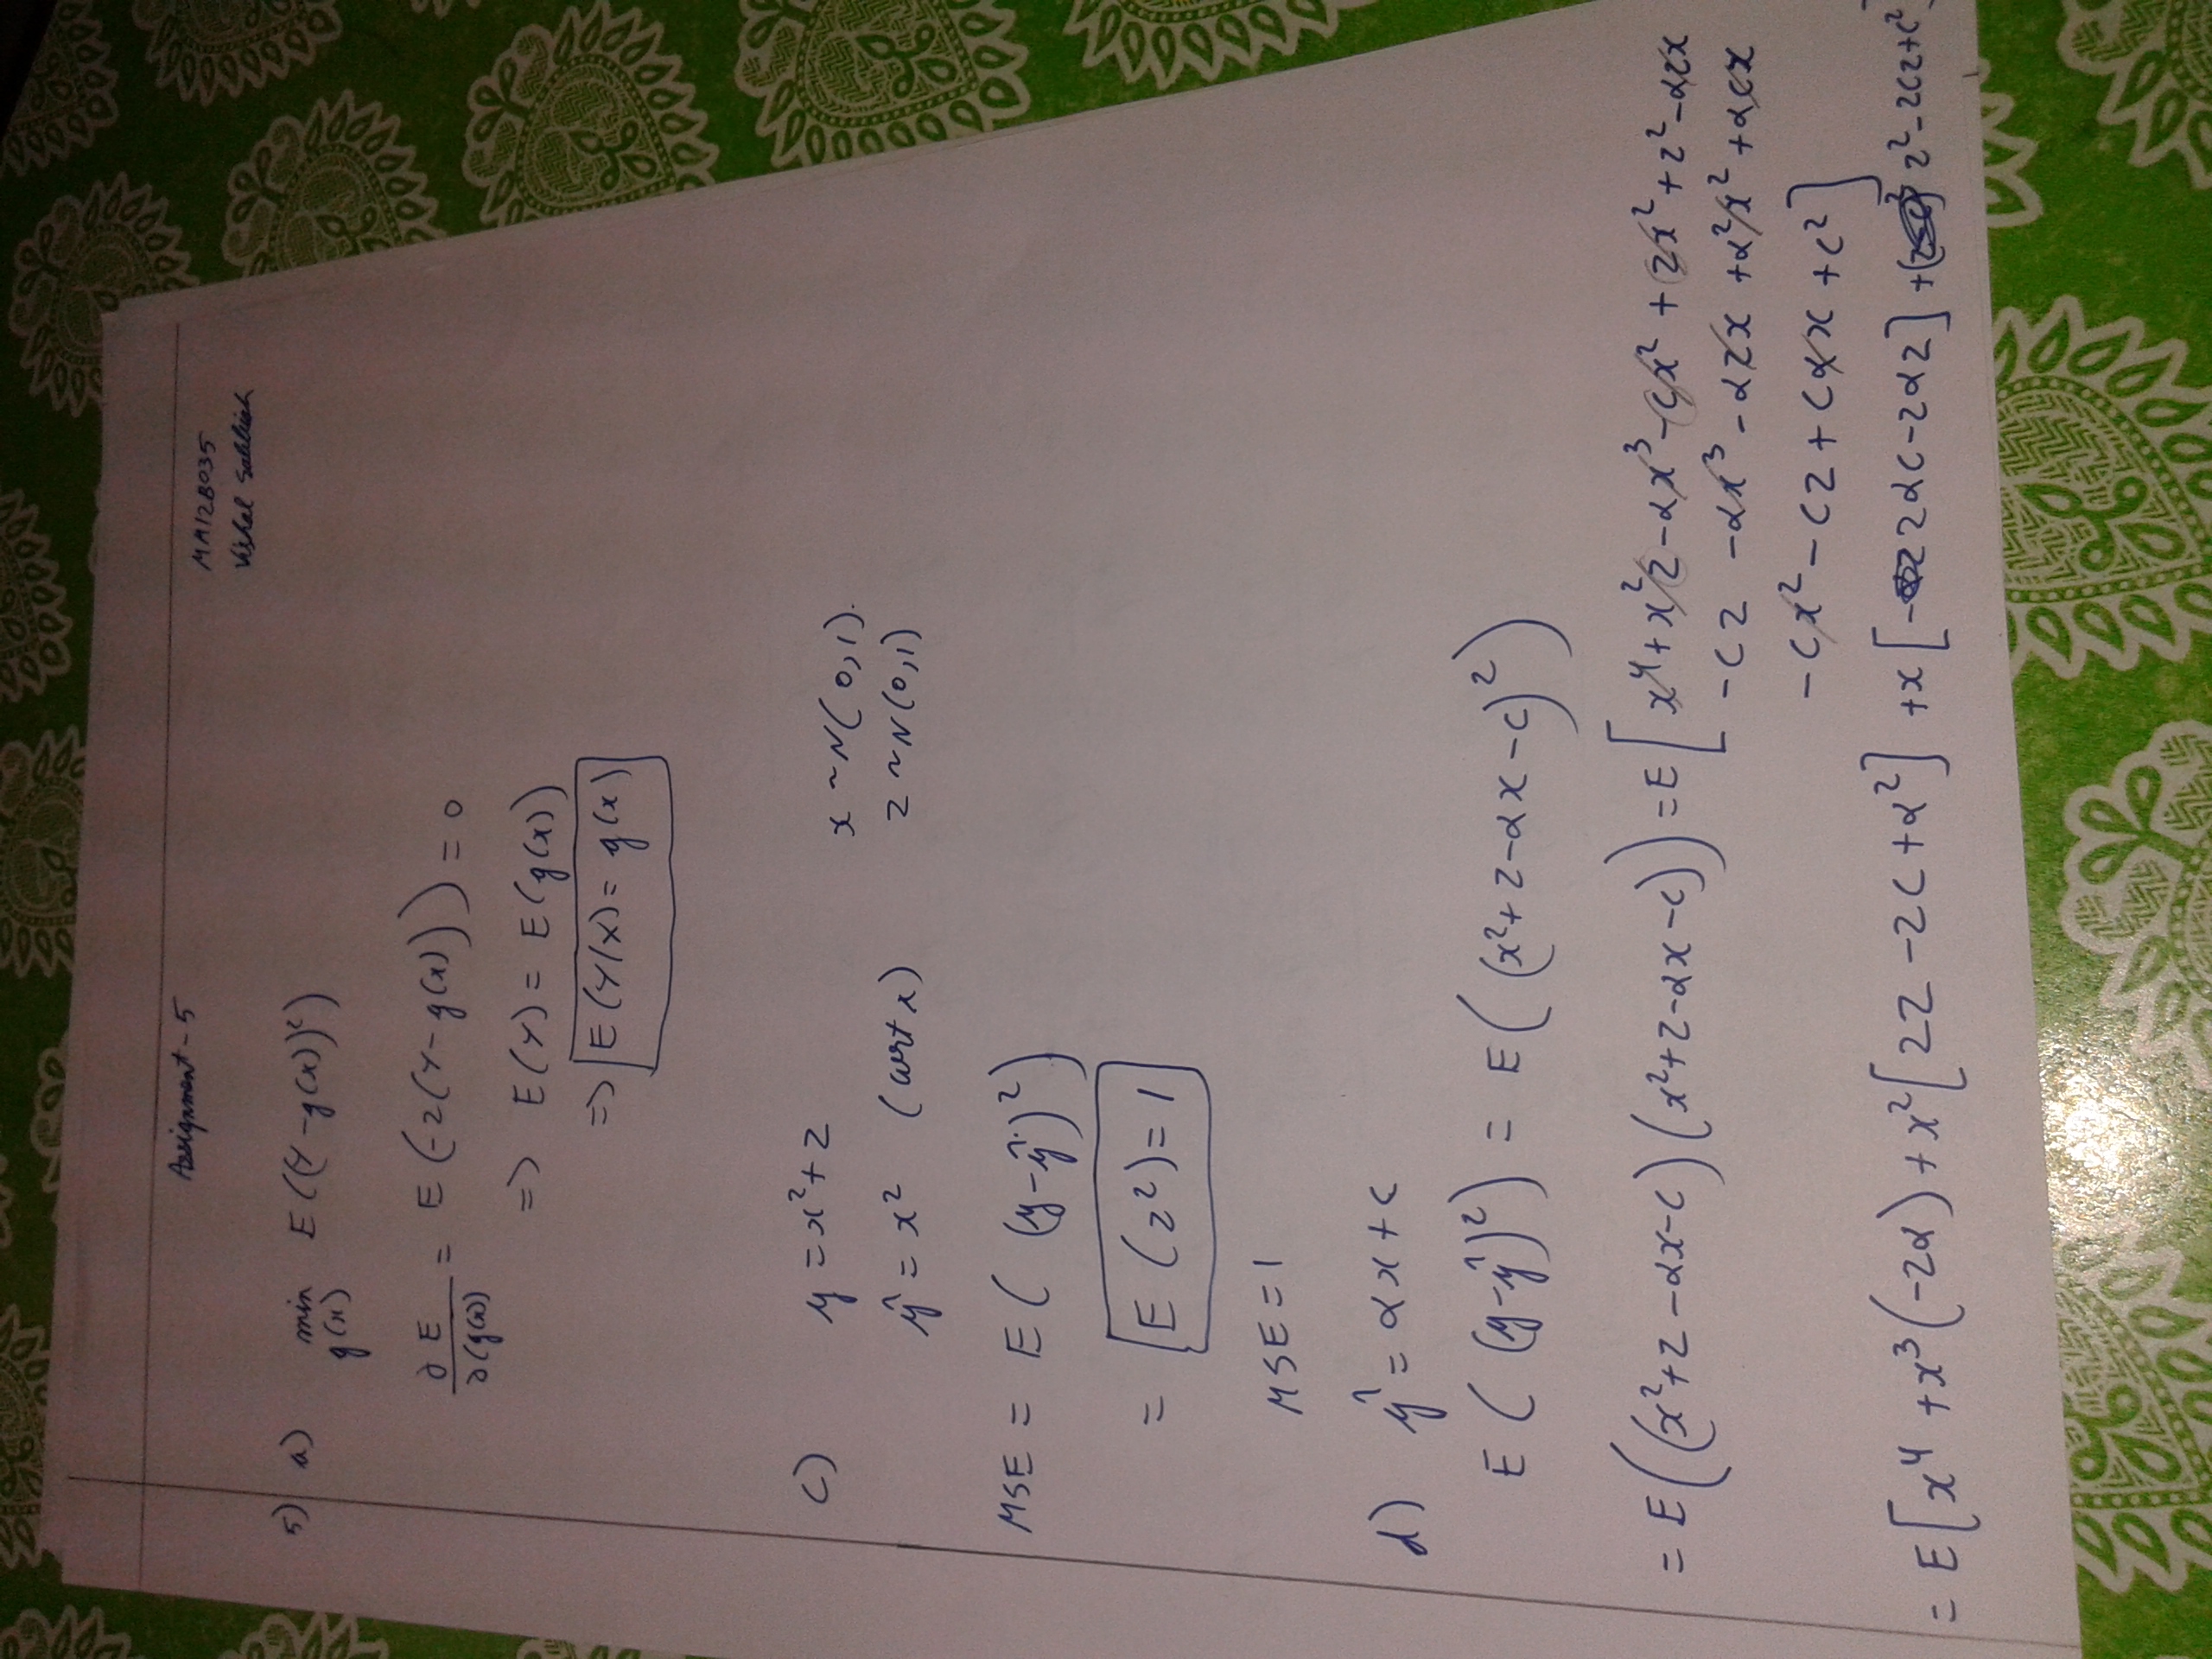 Assignment - 5
MM12B035
Vishal
5) a) min E((Y-g(x))²)
g(x)
∂E/∂(g(x)) = E(-2(Y-g(x))) = 0
=> E(Y) = E(g(x))
=> E(Y/X) = g(x)
c) y = x²+z x ~N(0,1).
ŷ = x² (wrt x) z ~N(0,1)
MSE = E( (y-ŷ)²)
= E (z²)=1
MSE = 1
d) ŷ = αx+c
E( (y-ŷ)²) = E( (x²+z-αx-c)²)
= E((x²+z-αx-c)(x²+z-αx-c)) = E[ x⁴+x²z-αx³-cx²+zx²+z²-αzx
-cz -αx³-αzx +α²x²+αcx
-cx²-cz+cαx+c²]
= E[x⁴+x³(-2α)+x²[2z-2c+α²] +x[ 2αc-2αz]+ z²-2cz+c²]